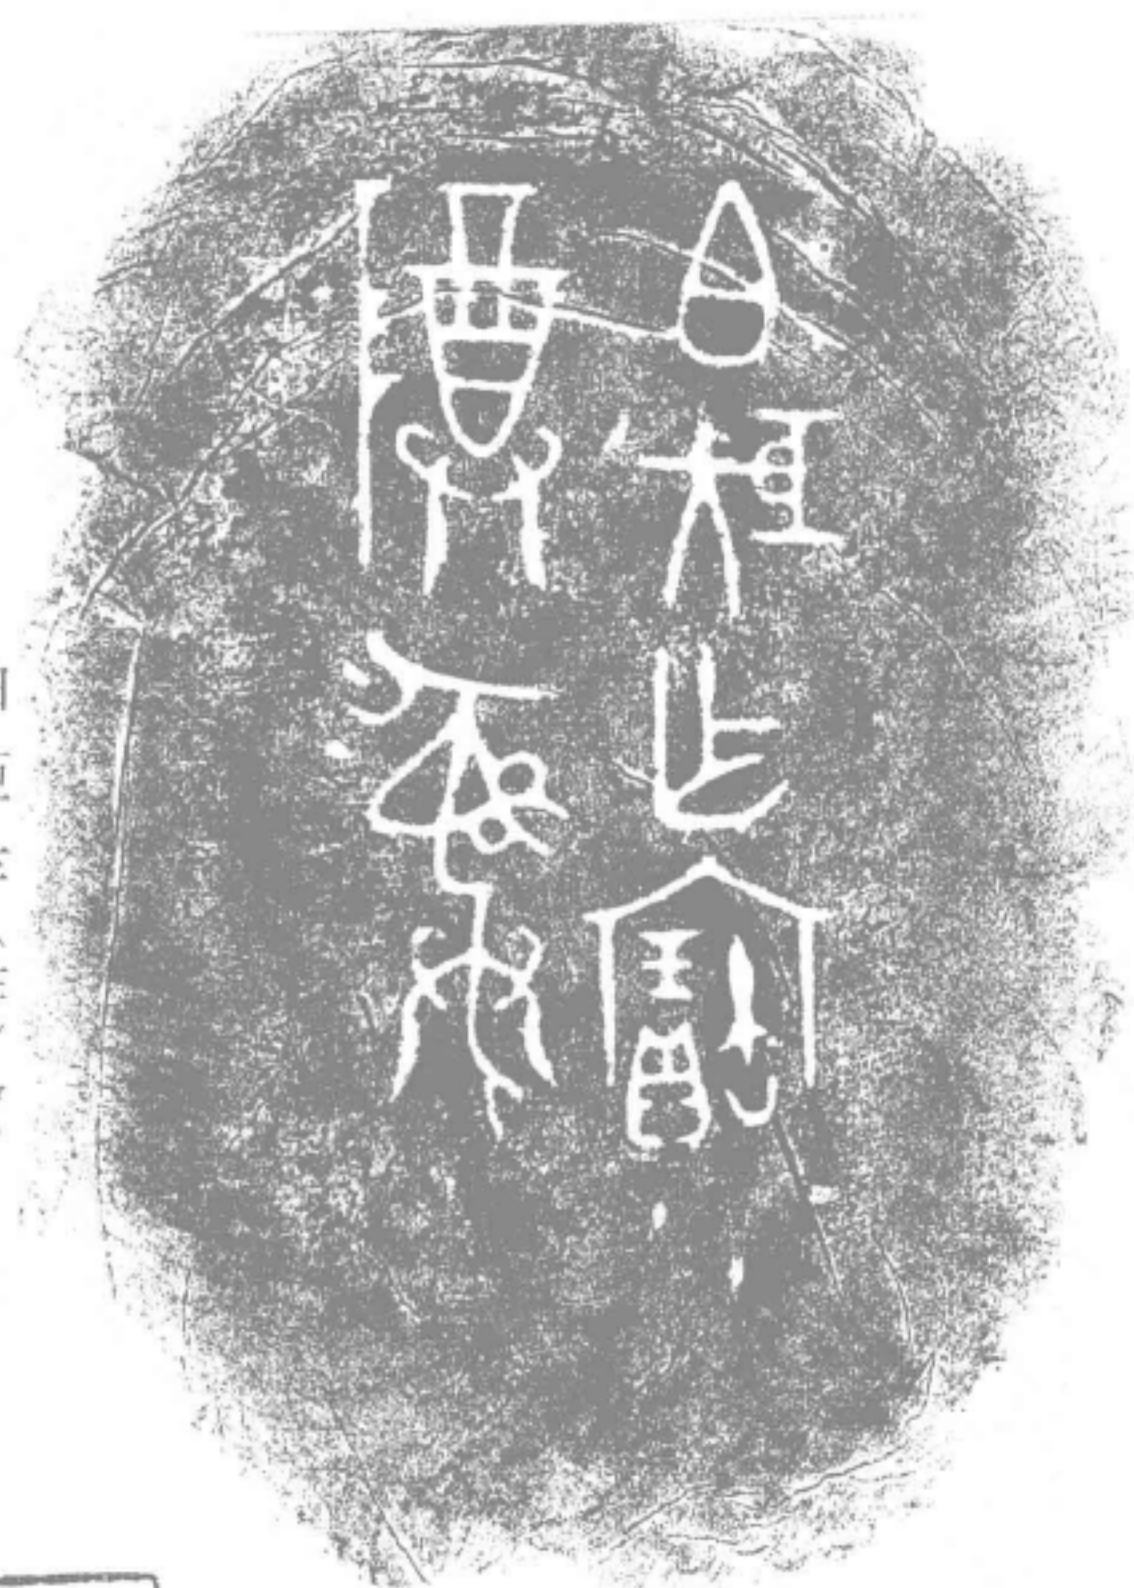 白矩乍寶
尊彝